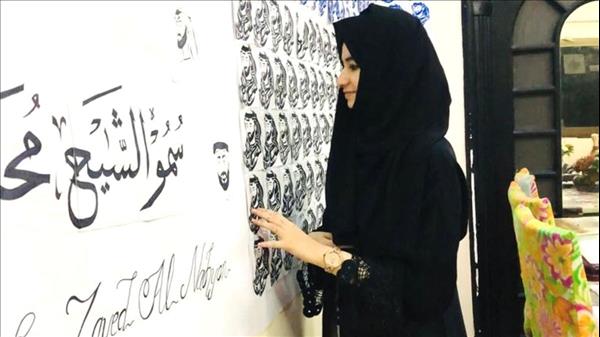 سُمُوّ الشَّيخ مُحَ
Zayed Al Nahyan